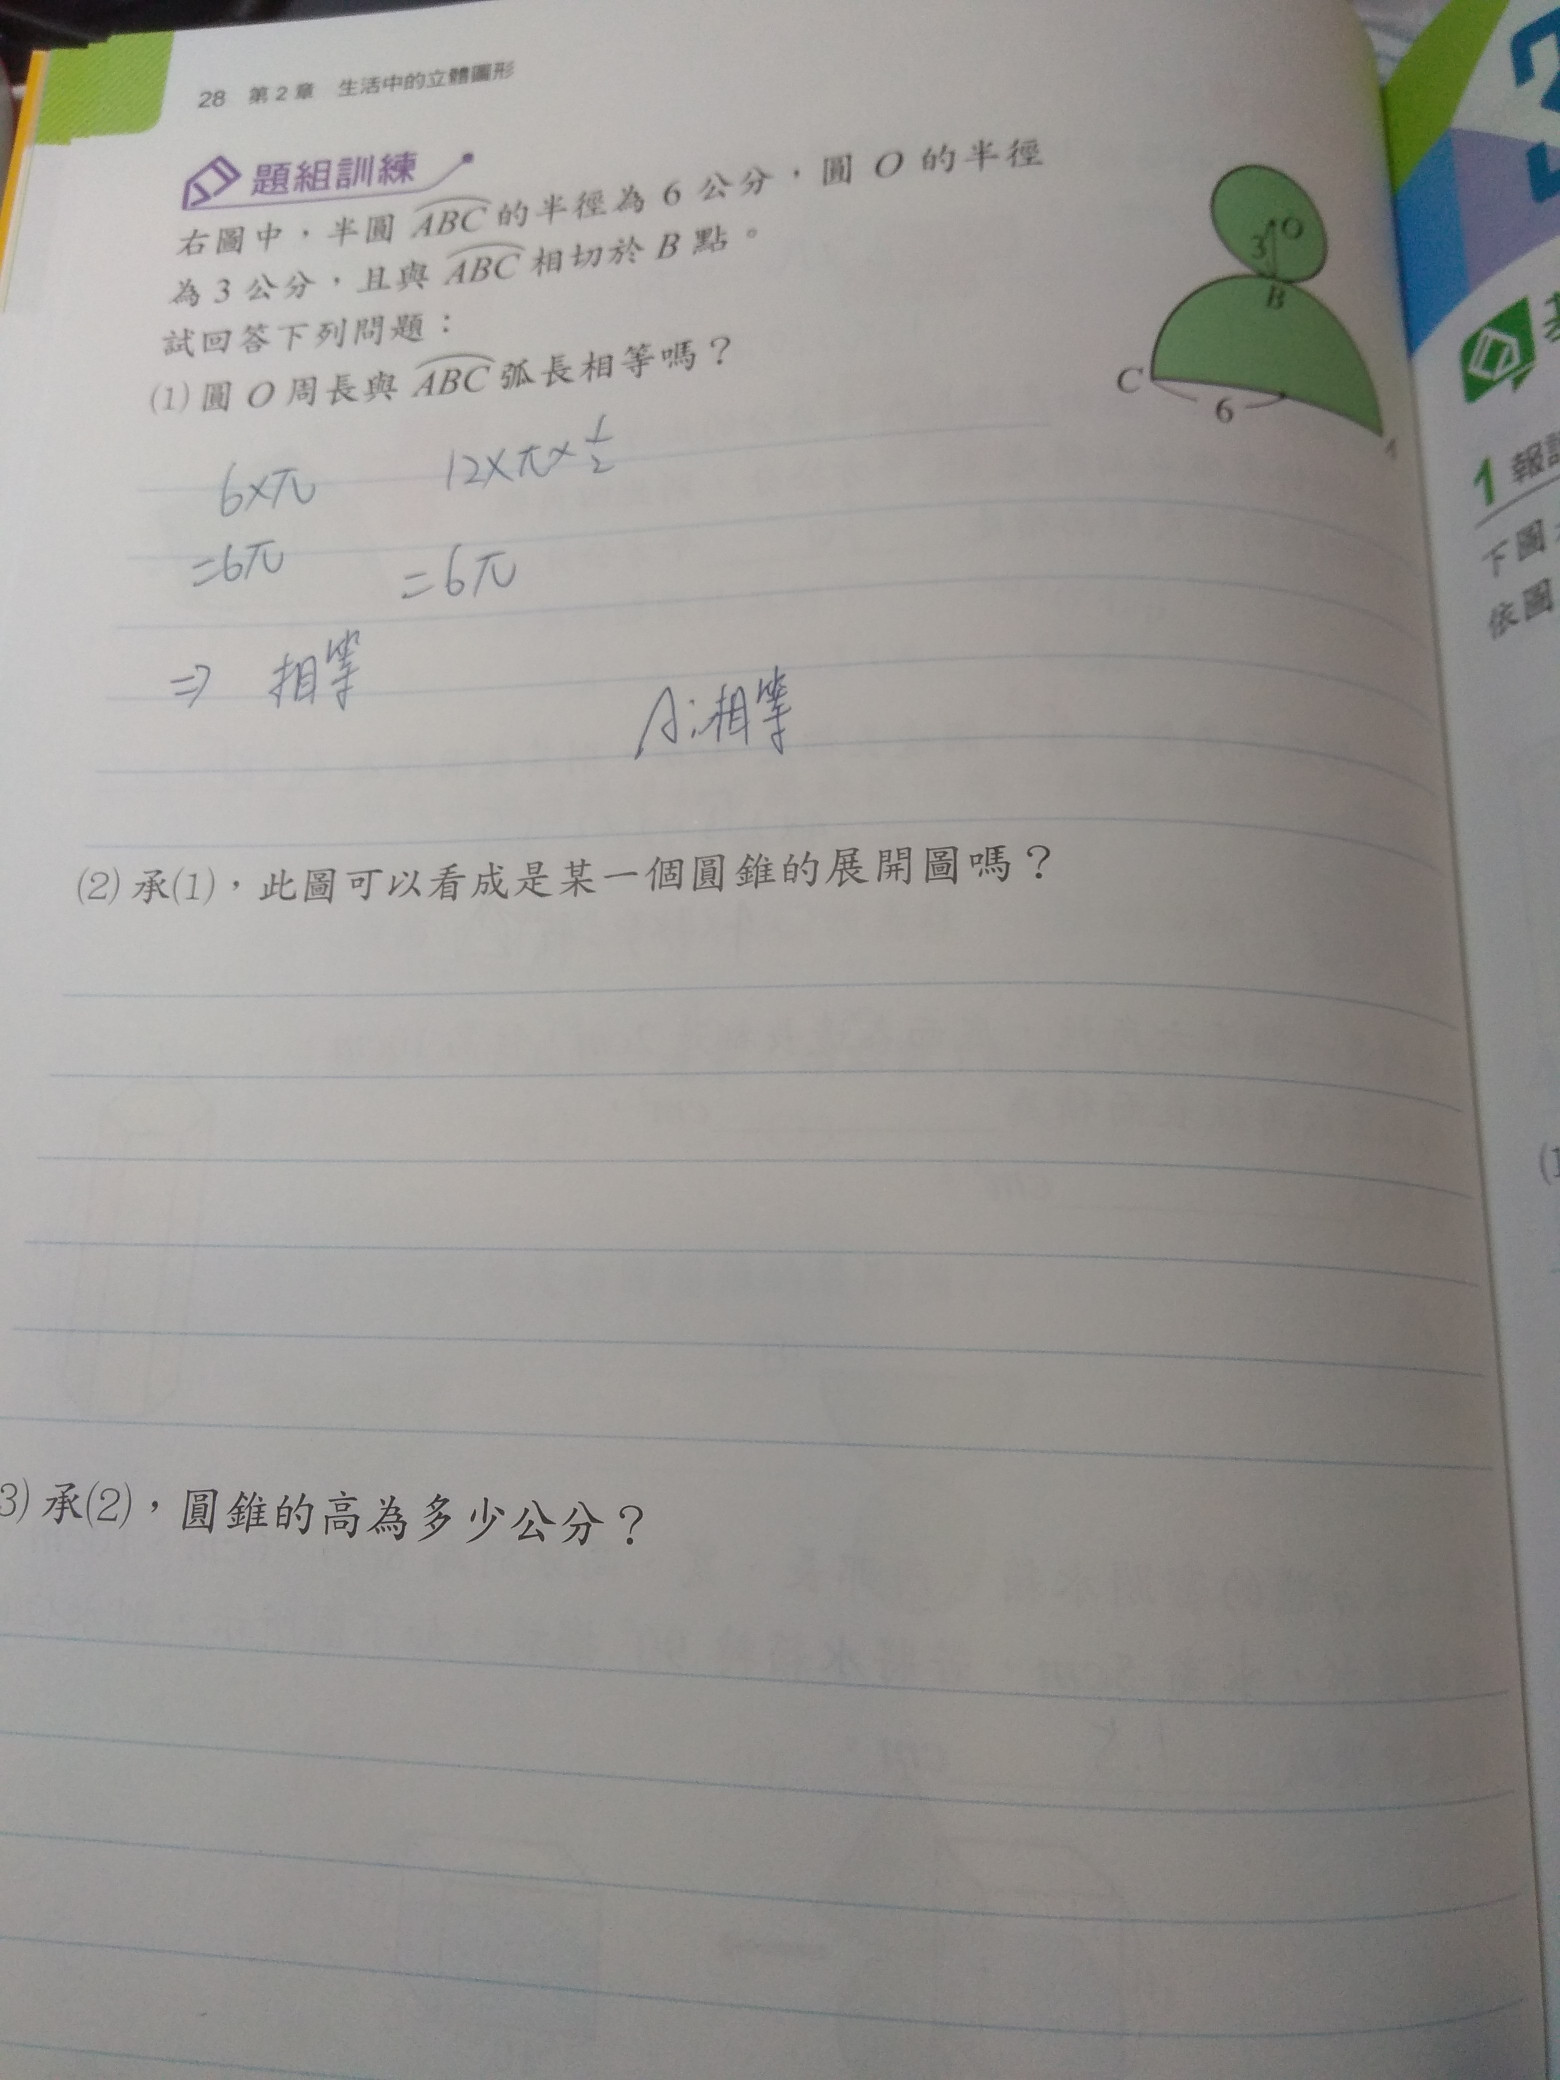 28 第2章 生活中的立體圖形
題組訓練
右圖中，半圓 ABC 的半徑為 6 公分，圓 O 的半徑
為 3 公分，且與 ABC 相切於 B 點。
試回答下列問題：
(1) 圓 O 周長與 ABC 弧長相等嗎？
O
3
B
C
6
A
6×π 12×π×1/2
=6π =6π
⇒ 相等
A:相等
(2) 承(1)，此圖可以看成是某一個圓錐的展開圖嗎？
3) 承(2)，圓錐的高為多少公分？
3
1 報
下圖
依圖
(1